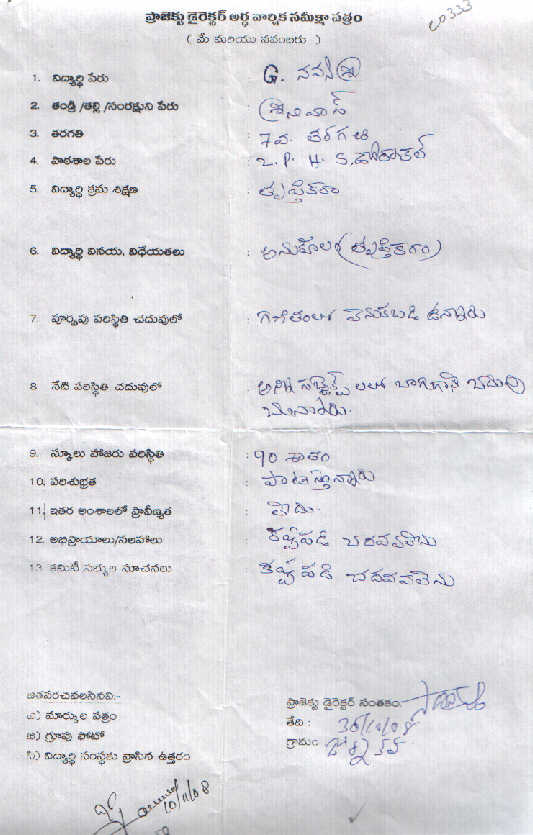 ప్రాజెక్టు డైరెక్టర్ అర్ధ వార్షిక సమీక్షా పత్రం
( మే మరియు నవంబరు )
1. విద్యార్థి పేరు : G. నవనీ
2. తండ్రి/తల్లి/సంరక్షుని పేరు : శ్రీనివాస్
3. తరగతి : 7వ. తరగతి
4. పాఠశాల పేరు : Z. P. H. S.
5. విద్యార్థి క్రమ శిక్షణ :
6. విద్యార్థి వినయ, విధేయతలు : అనుకూలం
7. పూర్వపు పరిస్థితి చదువులో : గణితంలో వెనుకబడి ఉన్నారు
8 నేటి పరిస్థితి చదువులో : అన్ని సబ్జెక్ట్స్ లలో బాగానే చదువు
చున్నారు.
9. స్కూలు హాజరు పరిస్థితి : 90 శాతం
10. పరిశుభ్రత : పాటిస్తున్నారు
11. ఇతర అంశాలలో ప్రావీణ్యత :
12. అభిప్రాయాలు/సలహాలు : కష్టపడి చదవవలెను
13. కమిటీ సభ్యుల సూచనలు : కష్టపడి చదవవలెను
జతపరచవలసినవి:-
ఎ) మార్కుల పత్రం
బి) గ్రూపు ఫోటో
సి) విద్యార్థి సంస్థకు వ్రాసిన ఉత్తరం
ప్రాజెక్టు డైరెక్టర్ సంతకం:
తేది : 30/10/08
గ్రామం
10/11/08